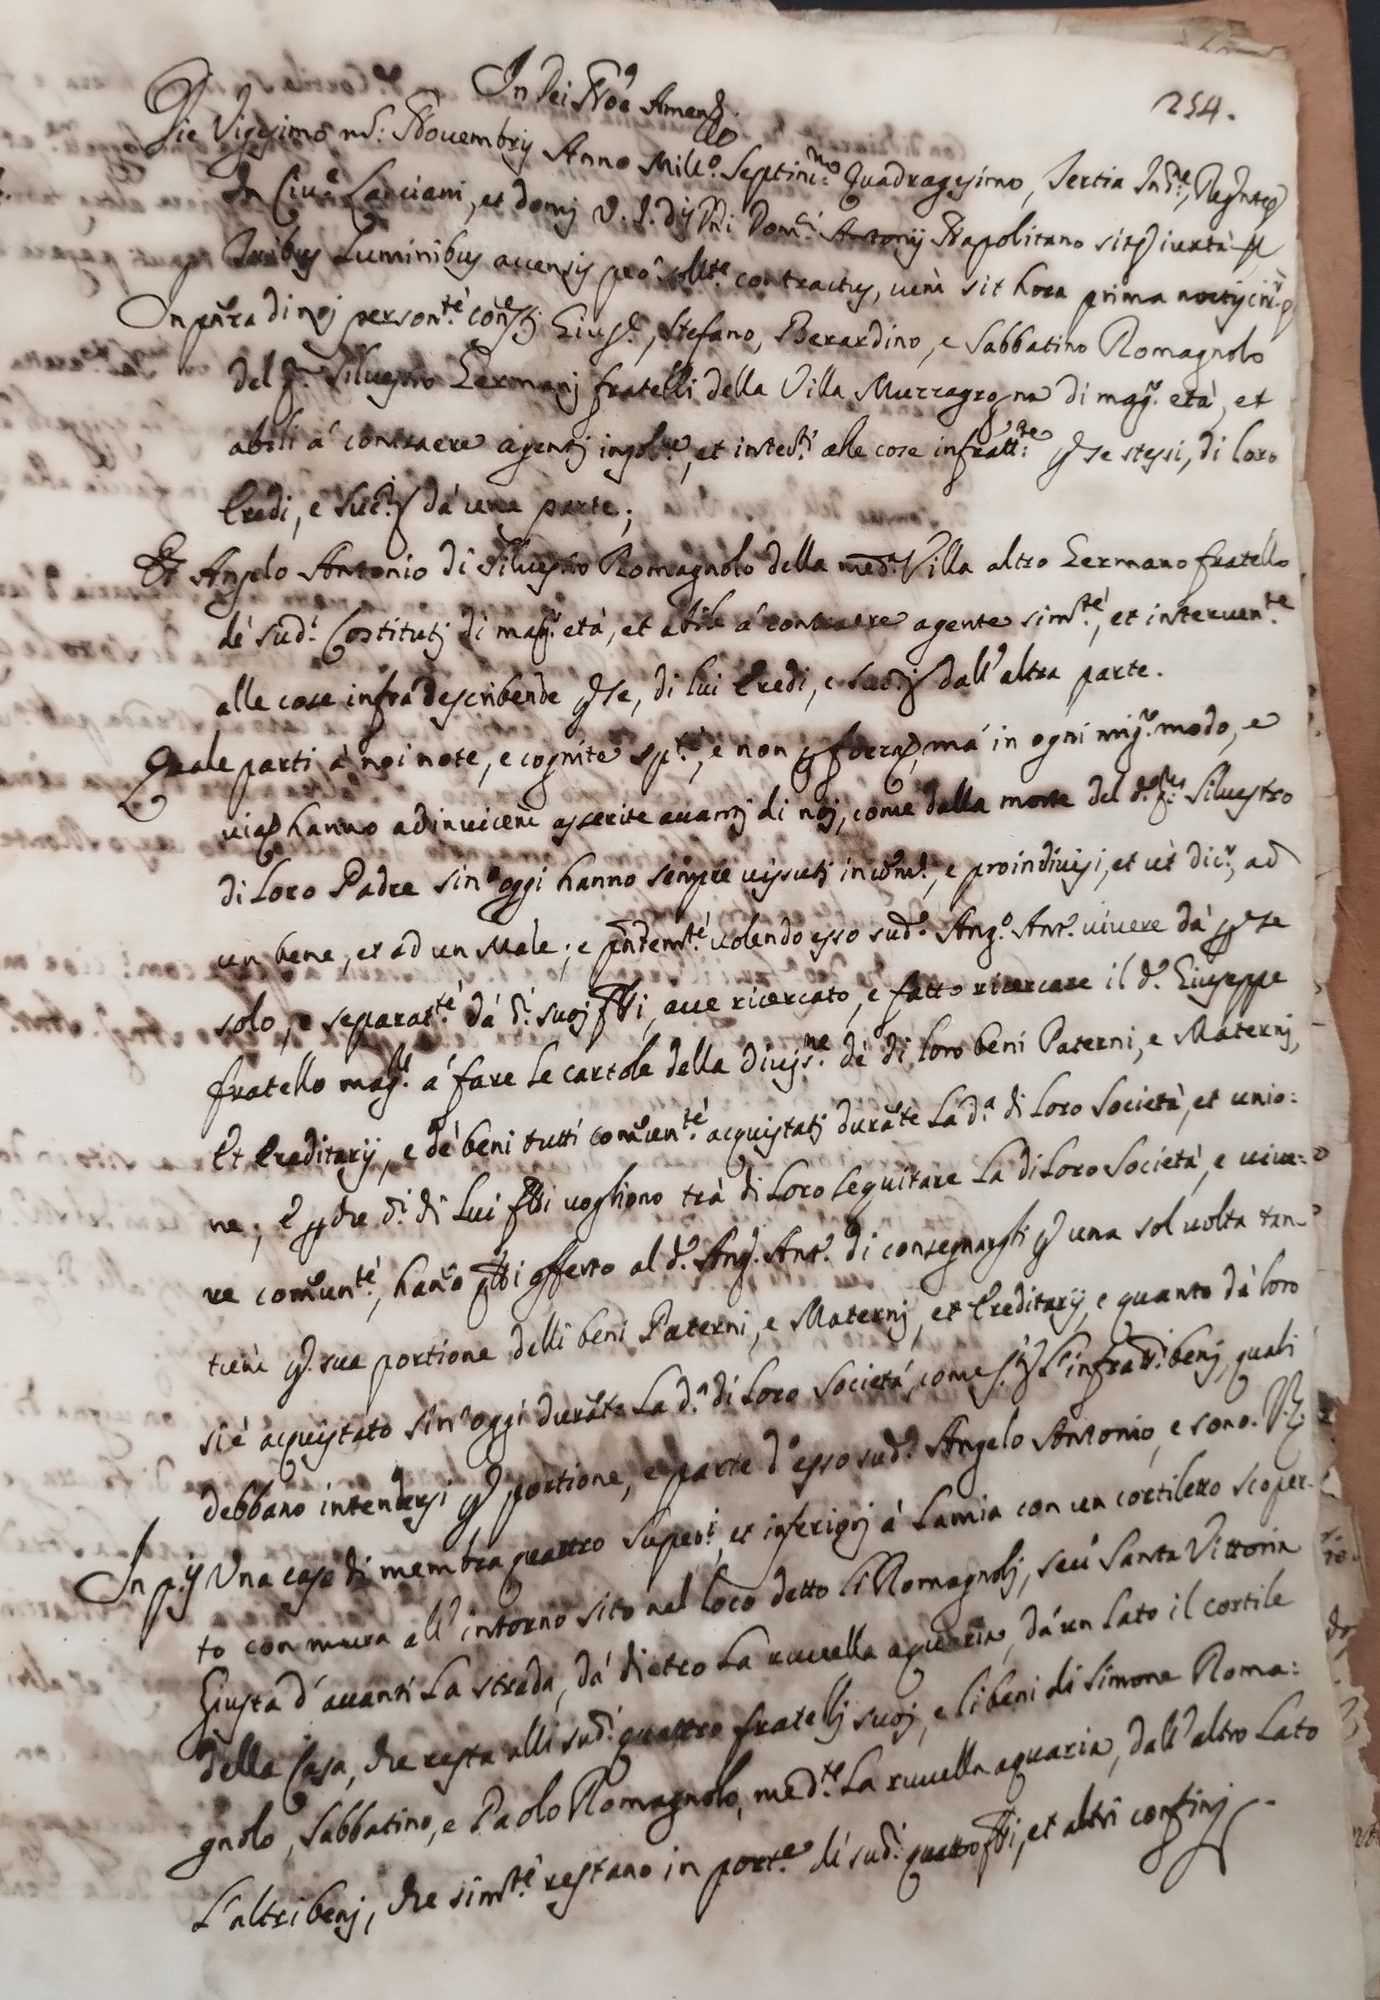 254.
In Dei Noe Amen
Die Vigesimo ms: Novembrij Anno Mill.o Septin.mo Quadragesimo, Tertia Ind.e, Regnte
In Civ.e Lanciani, et domj V. J. D. Dni Dom.ci Antonij Napolitano sit iuxta
Tribus Luminibus accensis pro contractus, cum sit hora prima noctis
In pnza di noi person.te const.i Gius.e, Stefano, Berardino, e Sabbatino Romagnolo
del q.m Silvestro Germanj fratelli della Villa Mozzagrogna di magg.r età, et
abili a' contraere agentj insol.m, et inted.i alle cose infratte: p se stessi, di loro
Eredi, e Succ.i da' una parte;
Et Angelo Antonio di Silvestro Romagnolo della med.a Villa altro Germano fratello
de' sud.i Costitutj di mag.r età, et abile a' contraere agente sim.te, et interven.te
alle cose infra describende p se, di lui Eredi, e Succ.i dall' altra parte.
Quale parti à noi note, e cognite sp.te, e non p forza, ma' in ogni mig.r modo, e
via hanno adinvicem asserite avantj di noj, come dalla morte del d.o q.m Silvestro
di Loro Padre sin' oggi hanno sempre vissutj in com.e, e proindivisi, et ut dic.r, ad
un bene, et ad un Male; e pntem.te volendo esso sud.o Ang.o Ant.o vivere da' p se
solo, e separat.te da' d.i suoj Flli, ave ricercato, e fatto ricercare il d.o Giuseppe
fratello magg.re a' fare Le cartole della divis.ne de' di loro beni Paterni, e Maternj,
Et Ereditarij, e de' beni tutti comun.te acquistatj durate La d.a di Loro Società, et unio:
ne; E p che d.i di Lui Flli vogliono trà di Loro seguitare La di Loro Società, e vive:
re comun.te, hano qlli offerto al d.o Ang.o Ant.o di consegnargli p una sol volta tan-
tum p. sua portione delli beni Paterni, e Maternj, et Ereditarij, e quanto da' loro
si è acquistato sin' oggi durate La d.a di Loro Società, come s. L' infratti benj, quali
debbano intendersi p portione, e parte d' esso sud.o Angelo Antonio, e sono. V.z
In p.is Una casa di membra quattro super.i, et inferiorj a' Lamia con un cortiletto scoper-
to con mura all' intorno sito nel loco detto li Romagnolj, seu Santa Vittoria
Giusta d' avanti La strada, da' dietro La ruvella aquaria, da' un Lato il cortile
della Casa, che resta alli sud.i quattro fratellj suoj, e li beni di Simone Roma:
gnolo, Sabbatino, e Paolo Romagnolo, med.te La ruvella aquaria, dall' altro Lato
L' altri benj, che sim.te restano in port.e de' sud.i quattro Flli, et altri confinj